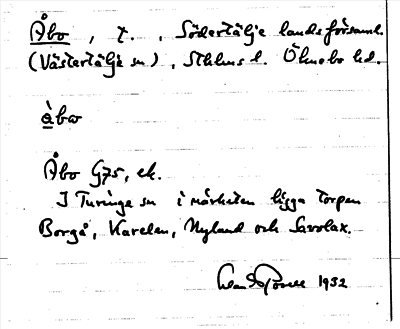 Åbo, t., Södertälje landsförsaml.
(Västertälje sn), Sthlms l. Öknebo hd.
åbω
Åbo G75, ek.
I Turinge sn i närheten ligga torpen
Borgå, Karelen, Nyland och Savolax.
1932